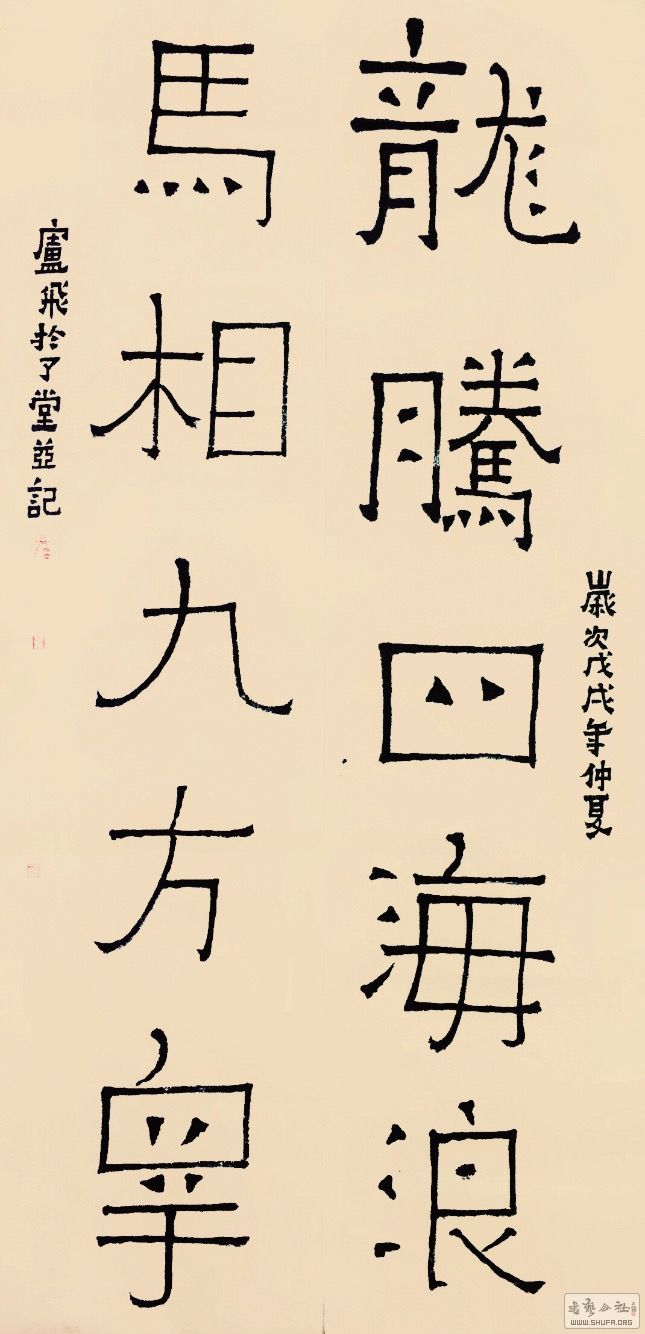 歲次戊戌年仲夏
龍騰四海浪
馬相九方皋
盧飛於了堂並記
书艺公社
WWW.SHUFA.ORG